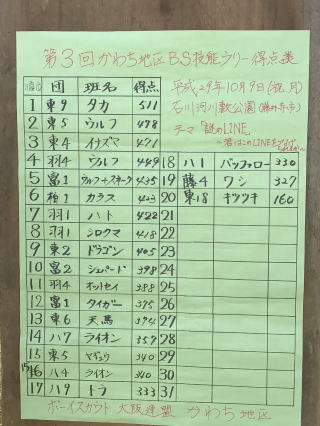 第3回かわち地区BS技能ラリー得点表
順位 団 班名 得点
平成29年10月9日(祝月)
石川河川敷公園(藤井寺市)
テーマ「謎のLINE」
1 東9 タカ 511
2 東5 ウルフ 478
3 東4 イナズマ 471
4 羽4 ウルフ 449
5 富1 ウルフ+スネーク 435
6 柏1 カラス 423
7 羽1 ハト 422
8 羽1 シロクマ 418
9 東2 ドラゴン 405
10 富2 シェパード 398
11 羽4 オットセイ 388
12 富1 タイガー 375
13 東6 天馬 374
14 八7 ライオン 357
15 東5 ヤギュウ 340
16 八4 ライオン 340
17 八9 トラ 333
18 八1 バッファロー 330
19 藤4 ワシ 327
20 東18 キツツキ 160
21
22
23
24
25
26
27
28
29
30
31
ボーイスカウト 大阪連盟 かわち地区